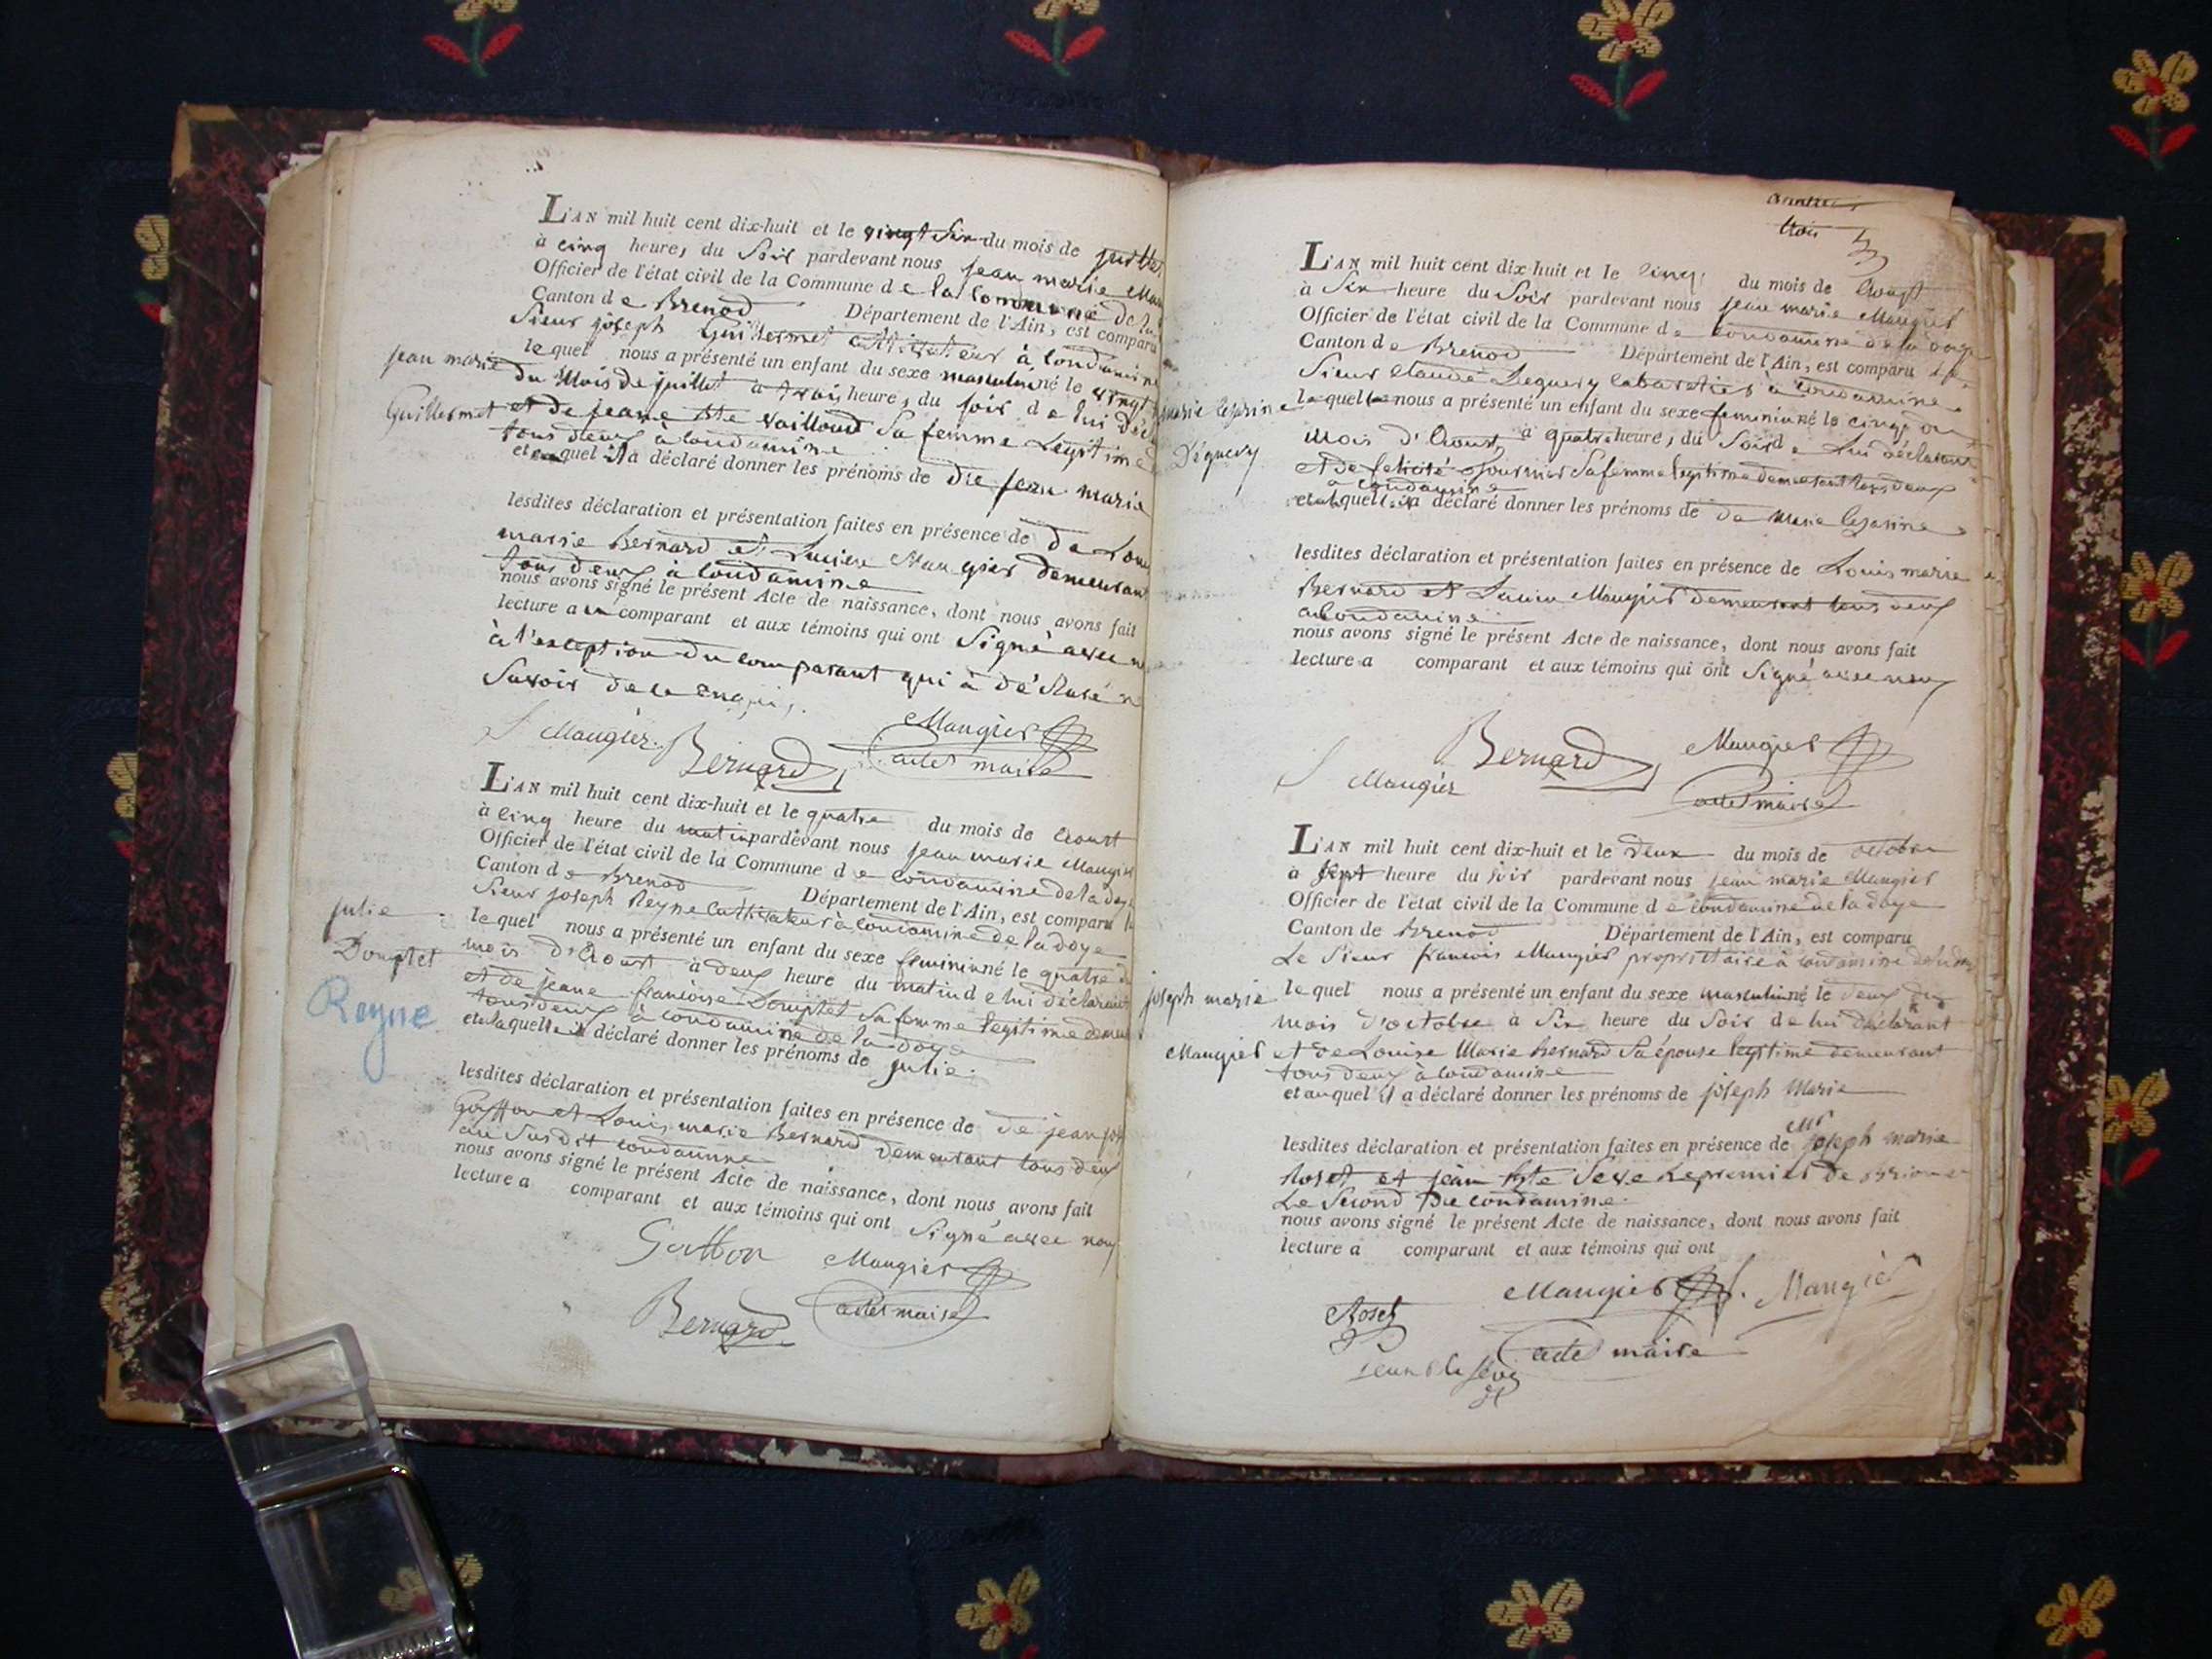 L'AN mil huit cent dix-huit et le vingt six du mois de juillet
à cinq heures du soir pardevant nous jean marie
Officier de l'état civil de la Commune de la commune de la
Canton de Brenod Département de l'Ain, est comparu
Sieur joseph Guillermet cultivateur à Condamine
lequel nous a présenté un enfant du sexe masculin né le vingt
jean marie
du Mois de juillet à trois heures du soir de lui
Guillermet
et de jeane Bte Vailloud sa femme Legitime
tous deux à Condamine
et auquel il a déclaré donner les prénoms de de jean marie
lesdites déclaration et présentation faites en présence de de
marie Bernard et Lucien Maugier demeurant
tous deux à Condamine
nous avons signé le présent Acte de naissance, dont nous avons fait
lecture au comparant et aux témoins qui ont Signé avec
à l'exception du comparant qui à déclaré ne
Savoir de ce enquis.
Maugier
J Maugiér. Bernard adet maire
L'AN mil huit cent dix-huit et le quatre du mois de Aoust
à cinq heure du matin pardevant nous jean marie Maugier
Officier de l'état civil de la Commune de Condamine de la doye
Canton de Brenod Département de l'Ain, est comparu le
Sieur joseph Reyne Cultivateur à Condamine de la doye
julie
lequel nous a présenté un enfant du sexe feminin né le quatre du
Douplet
mois d'Aoust à deux heure du matin de lui déclarant
Reyne
et de jeane françoise Douplet sa femme legitime
tous deux à Condamine de la doye
et a laquelle il a déclaré donner les prénoms de julie.
lesdites déclaration et présentation faites en présence de de jean
Goffon et Louis marie Bernard demeurant tous deux
au susdit Condamine
nous avons signé le présent Acte de naissance, dont nous avons fait
lecture a comparant et aux témoins qui ont Signé avec nous
Goffon Maugier
Bernard adet maire
trois
L'AN mil huit cent dix-huit et le cinq du mois de Aoust
à Six heure du Soir pardevant nous jean marie Maugier
Officier de l'état civil de la Commune de Condamine de la doye
Canton de Brenod Département de l'Ain, est comparu le
Sieur Claude Deguery Cabaretier à Condamine
marie
lequel nous a présenté un enfant du sexe feminin né le cinq du
Déguery
Mois d'Aoust à quatre heure, du Soir de Lui déclarant
et de felicité fournier sa femme legitime demeurant tous deux
à Condamine
et a laquelle il a déclaré donner les prénoms de de Marie
lesdites déclaration et présentation faites en présence de Louis marie
Bernard et Lucien Maugier demeurant tous deux
à Condamine
nous avons signé le présent Acte de naissance, dont nous avons fait
lecture a comparant et aux témoins qui ont Signé avec nous
Bernard Maugier
J Maugiér adet maire
L'AN mil huit cent dix-huit et le deux du mois de octobre
à Sept heure du soir pardevant nous jean marie Maugier
Officier de l'état civil de la Commune de Condamine de la doye
Canton de Brenod Département de l'Ain, est comparu
Le Sieur francois Maugier propriétaire à Condamine de la doye
joseph marie
lequel nous a présenté un enfant du sexe masculin né le deux du
mois d'octobre à Six heure du Soir de lui déclarant
Maugier
et de Louise Marie Bernard Sa épouse legitime demeurant
tous deux à Condamine
et auquel il a déclaré donner les prénoms de joseph Marie
lesdites déclaration et présentation faites en présence de Mr joseph marie
Roset et jean Bte Seve Le premier de
Le Second De Condamine.
nous avons signé le présent Acte de naissance, dont nous avons fait
lecture a comparant et aux témoins qui ont
Maugier f. Maugiér
Roset
adet maire